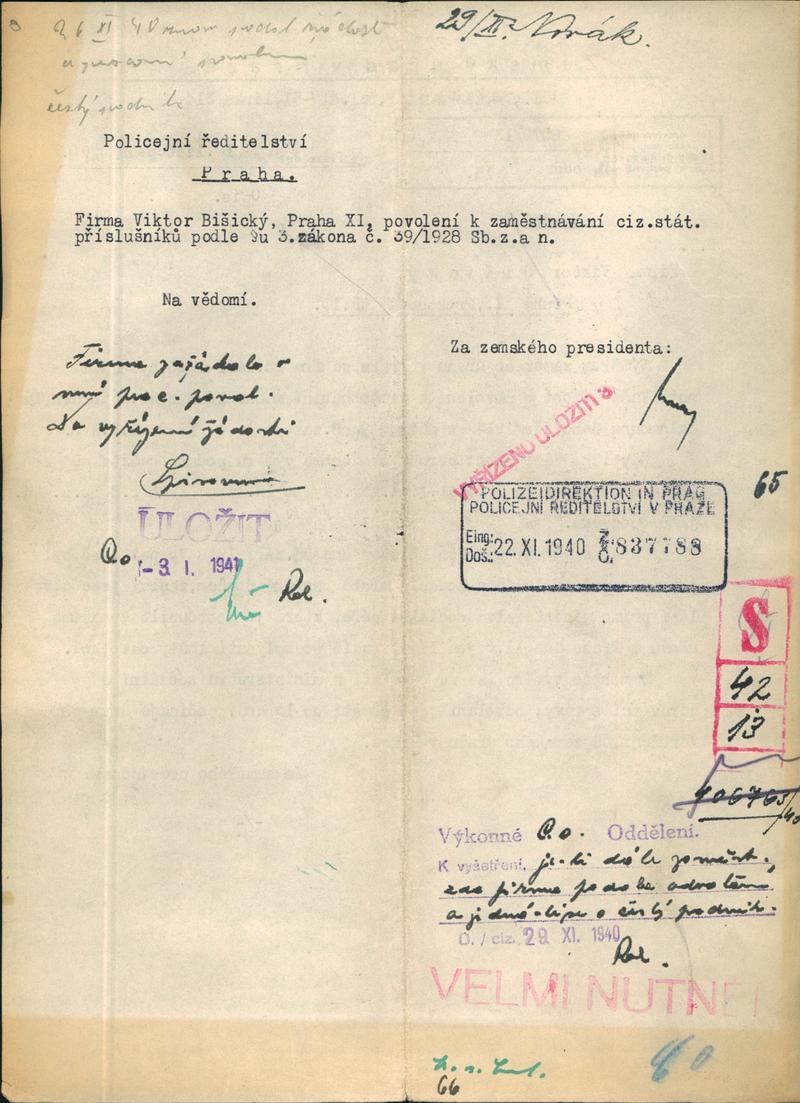 26 XI 40 znovu podal
český podnik
29/XI. Novák.
Policejní ředitelství
Praha.
Firma Viktor Bišický, Praha XI, povolení k zaměstnávání ciz.stát.
příslušníků podle §u 3.zákona č. 39/1928 Sb.z.a n.
Na vědomí.
Za zemského presidenta:
Firma zažádala o
nové prac. povol.
Do vyřízení žádosti
ULOŽIT
-3. I. 1941
Rel.
VYŘÍZENO ULOŽIT
65
POLIZEIDIREKTION IN PRAG
POLICEJNÍ ŘEDITELSTVÍ V PRAZE
Eing:
Doš.: 22. XI. 1940 837788
S
42
13
406765/40
Výkonné O.o. Oddělení.
K vyšetření, je-li dále zaměst.,
zda firma podala odvolání
a jedná-li se o český podnik.
O./ciz. 29. XI. 1940
Rel.
VELMI NUTNÉ!
66
60